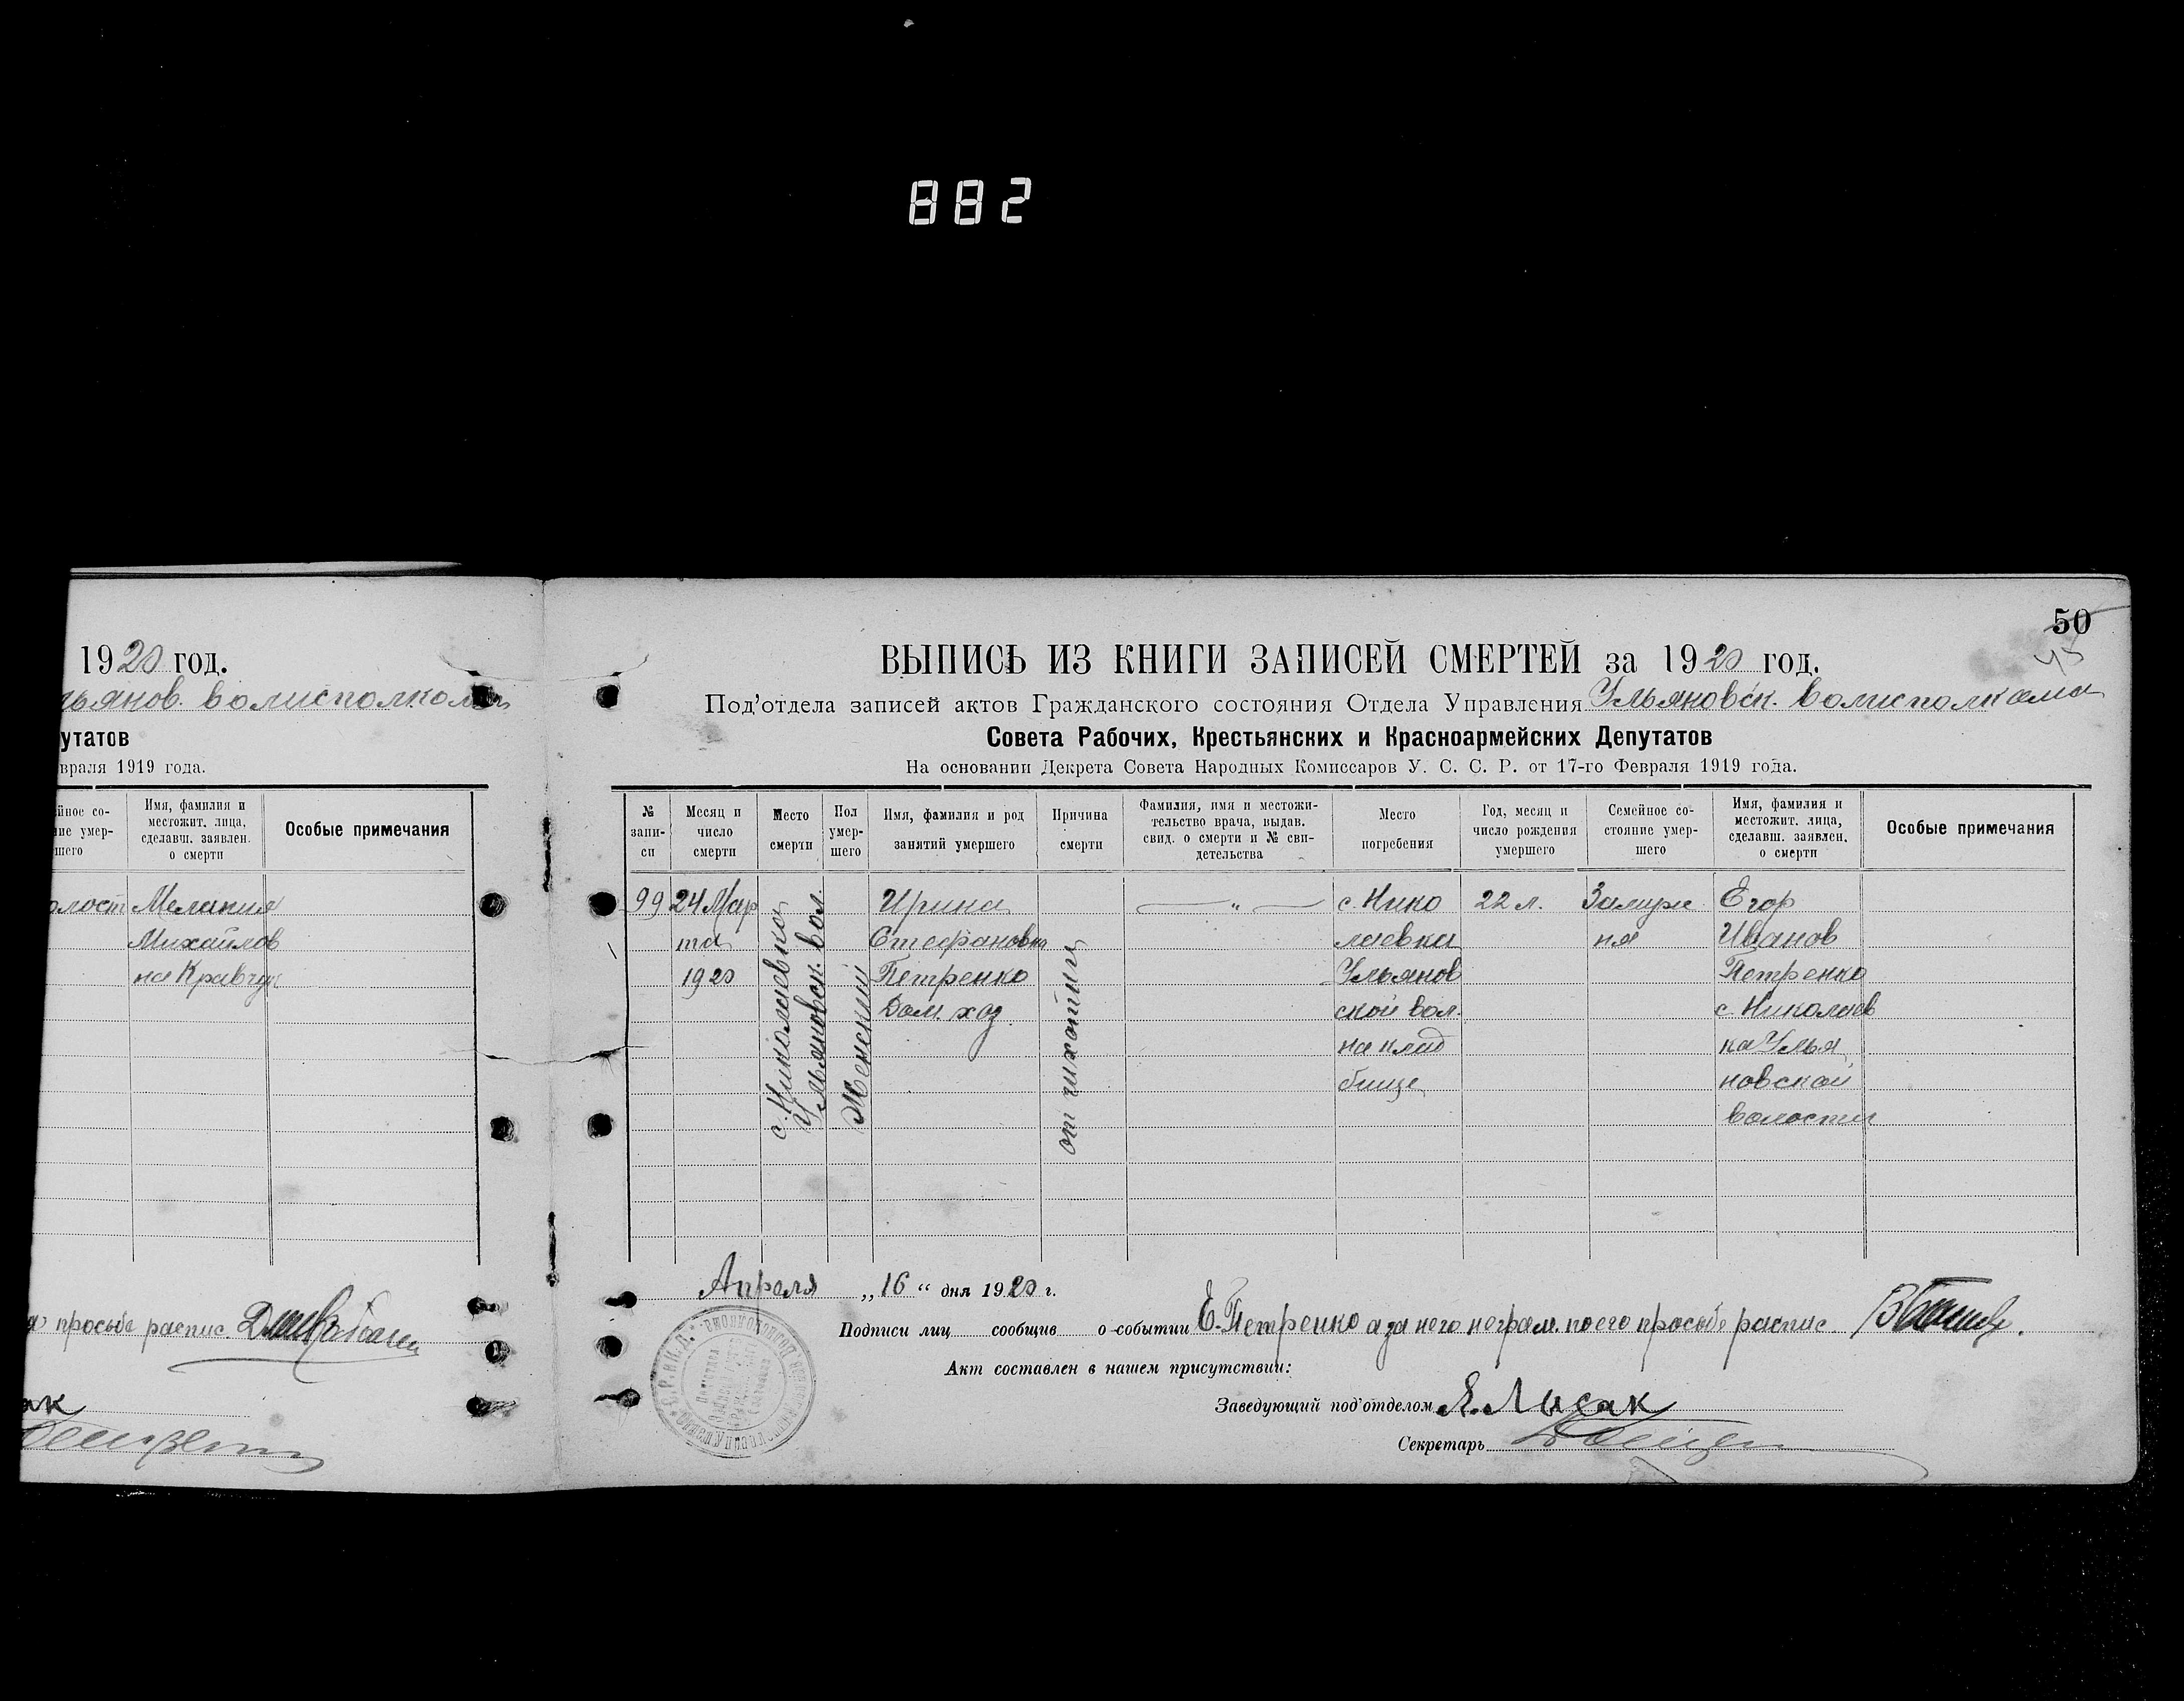 882
1920 год.
льянов. волисполкома
утатов
враля 1919 года.
йное со-
ние умер-
шего
Имя, фамилия и
местожит. лица,
сделавш. заявлен.
о смерти
Особые примечания
олост Мелания
Михайлов
на Кравчук
просьбе распис.
ак
50
45
ВЫПИСЬ ИЗ КНИГИ ЗАПИСЕЙ СМЕРТЕЙ за 1920 год.
Под'отдела записей актов Гражданского состояния Отдела Управления Ульяновск. волисполкома
Совета Рабочих, Крестьянских и Красноармейских Депутатов
На основании Декрета Совета Народных Комиссаров У. С. С. Р. от 17-го Февраля 1919 года.
№
запи-
си
Месяц и
число
смерти
Место
смерти
Пол
умер-
шего
Имя, фамилия и род
занятий умершего
Причина
смерти
Фамилия, имя и местожи-
тельство врача, выдав.
свид. о смерти и № сви-
детельства
Место
погребения
Год, месяц и
число рождения
умершего
Семейное со-
стояние умер-
шего
Имя, фамилия и
местожит. лица,
сделавш. заявлен.
о смерти
Особые примечания
99
24 Мар
та
1920
с. Николаевка
Ульяновск. вол.
Женский
Ирина
Стефановн
Петренко
Дом. хоз.
— " —
с. Нико
лаевка
Ульянов
ской вол.
на клад
бище
22 л.
Замуж
ня
Егор
Иванов
Петренко
с. Николаев
ка Улья
новской
волости
Апреля „16“ дня 1920 г.
Подписи лиц сообщив о событии Е. Петренко а за него неграм. по его просьбе распис.
Акт составлен в нашем присутствии:
Заведующий под'отделом Я. Лысак
Секретарь